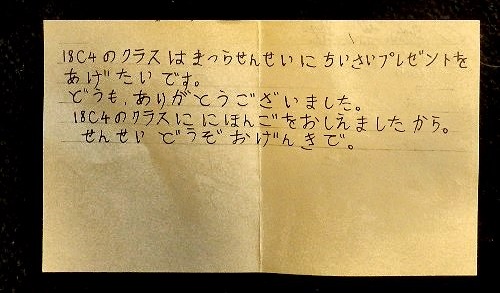 18C4のクラスはまつらせんせいにちいさいプレゼントを
あげたいです。
どうも、ありがとうございました。
18C4のクラスににほんごをおしえましたから。
せんせいどうぞおげんきで。